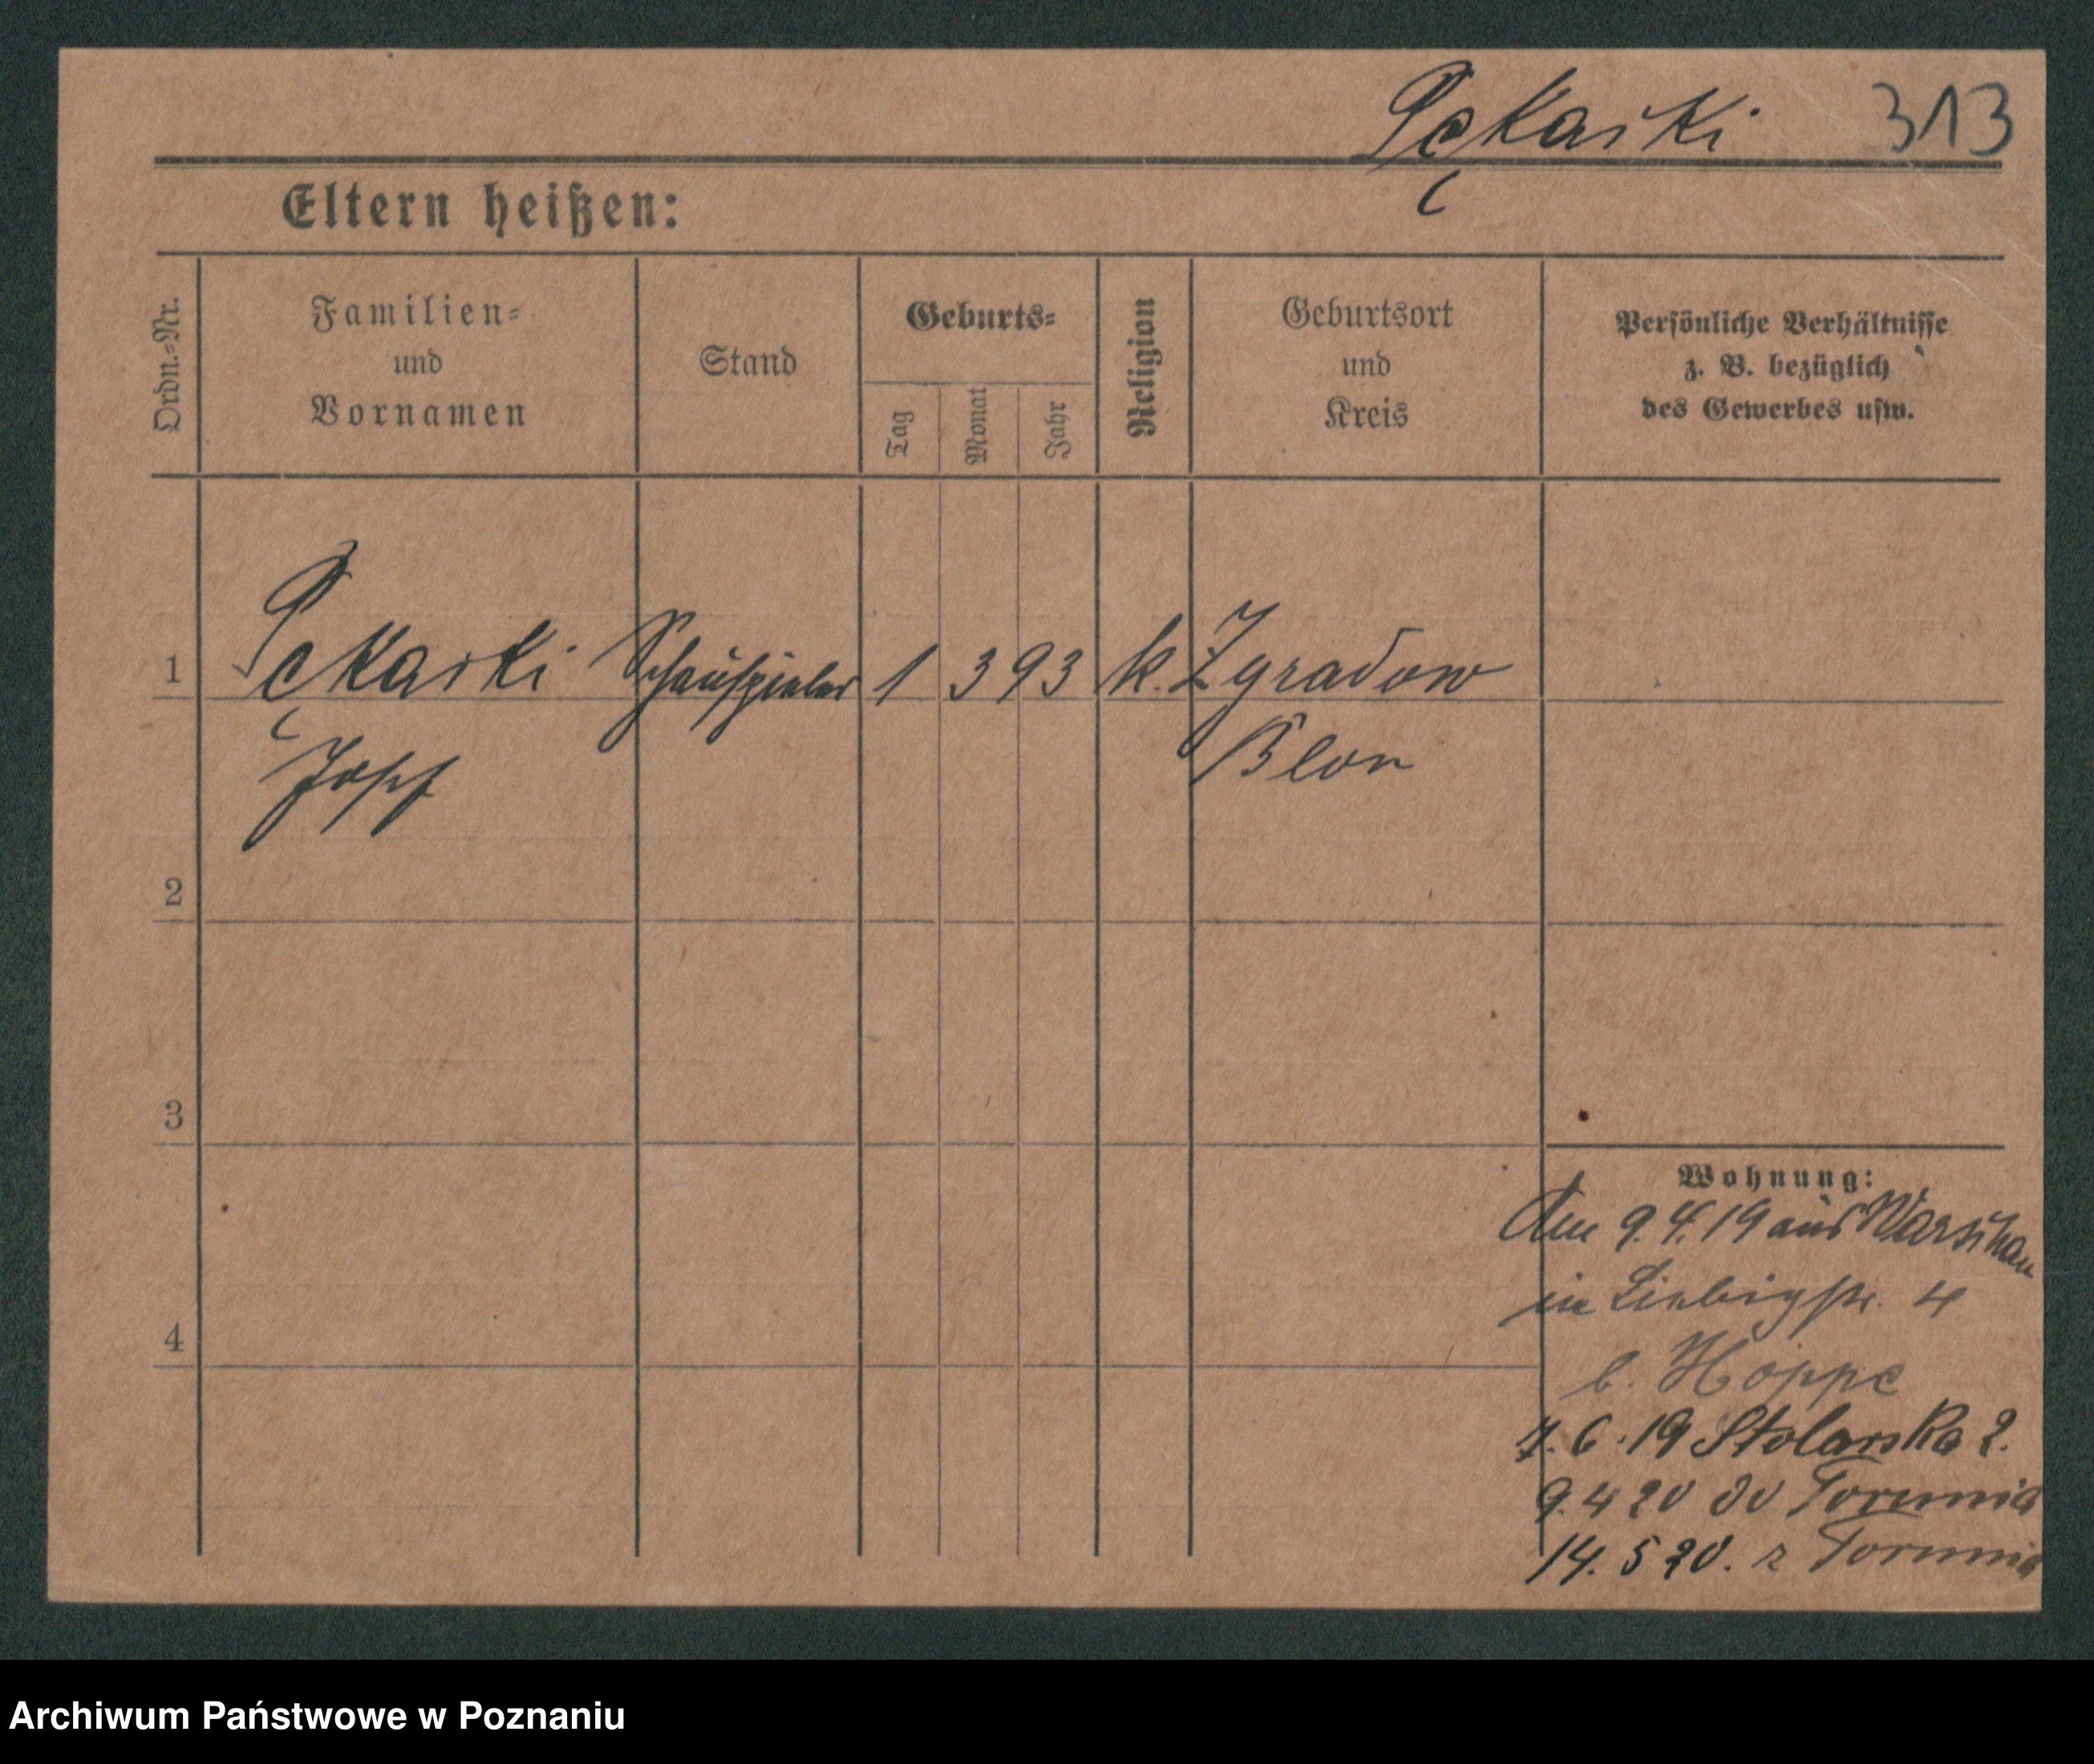 Pękaski 313
Eltern heißen:
Ordn.-Nr.
Familien-
und
Vornamen
Stand
Geburts-
Tag
Monat
Jahr
Religion
Geburtsort
und
Kreis
Persönliche Verhältnisse
z. B. bezüglich
des Gewerbes usw.
1 Pękaski Schauspieler 1 3 93 k. Zyradow
Josef Blon
2
3
4
Wohnung:
Am 9.4.19 aus Warschau
in Liebigstr. 4
b. Hoppe
7.6.19 Stolarska 2.
9.4 20 do Torunia
14.5 20. z Torunia
Archiwum Państwowe w Poznaniu